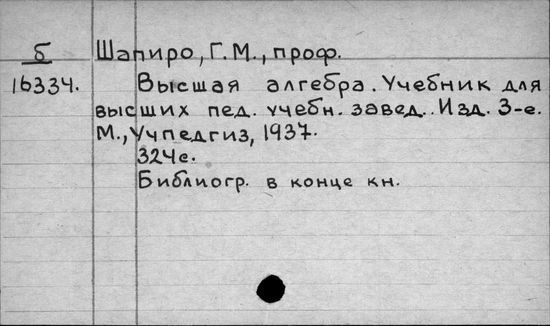 б Шапиро, Г.М., проф.
16334. Высшая алгебра. Учебник для
высших пед. учебн. завед. Изд. 3-е.
М., Учпедгиз, 1937.
324с.
Библиогр. в конце кн.